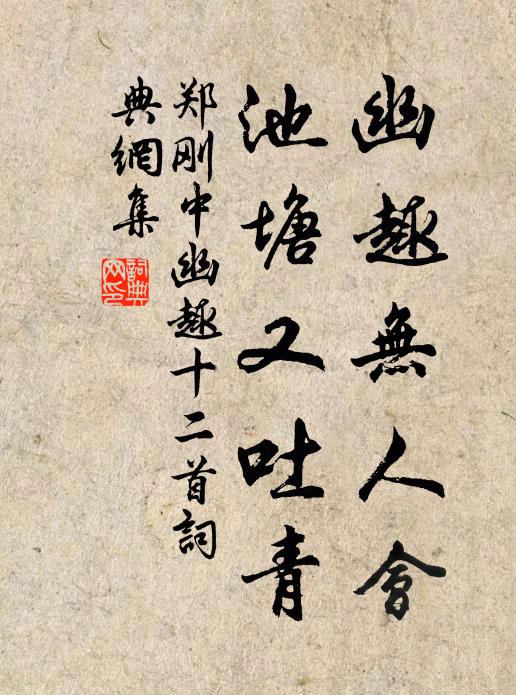 幽趣無人會
池塘又吐青
郑刚中幽趣十二首詞
典網集
詞典网印